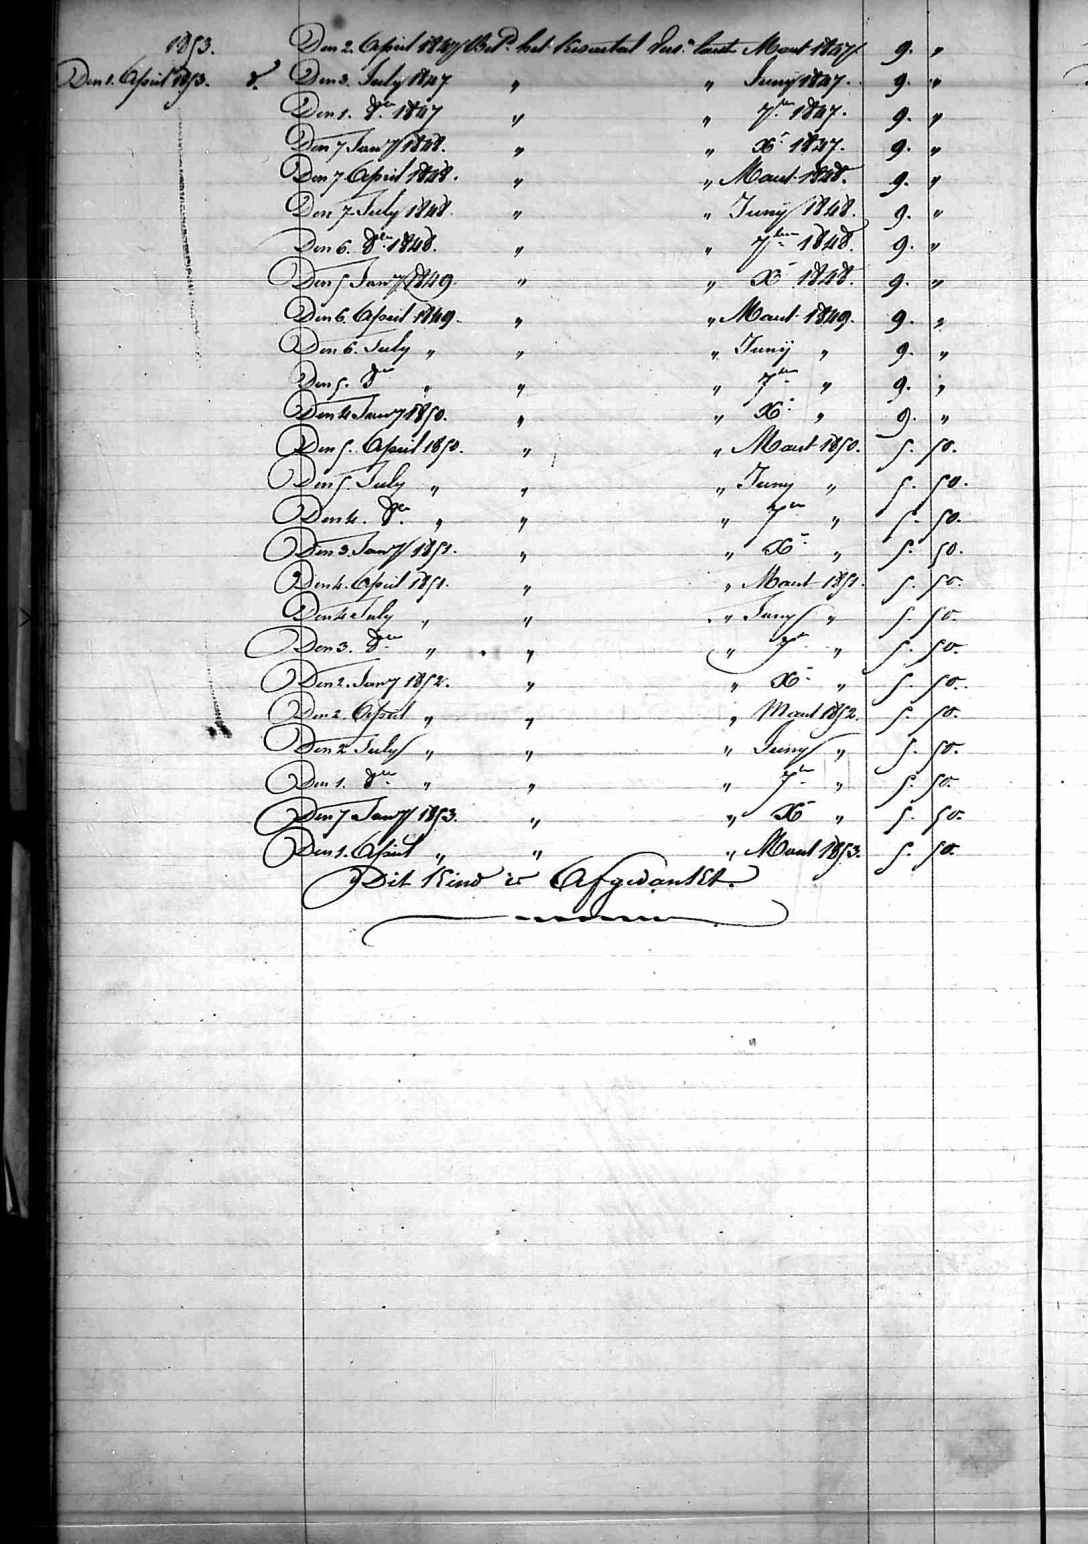 1853. Den 2. April 1847 Bet.d het kwartal Ins.o laust. Maart 1847. 9. "
Den 1. April 1853. d. Den 3. July 1847 " " Juny 1847. 9. "
Den 1. 8br 1847 " " 7br 1847. 9. "
Den 7 Jany 1848. " " Xr 1847. 9. "
Den 7 April 1848. " " Maart 1848. 9. "
Den 7 July 1848. " " Juny 1848. 9. "
Den 6. 8br 1848. " " 7ber 1848. 9. "
Den 5 Jany 1849. " " Xr 1848. 9. "
Den 6. April 1849. " " Maart 1849. 9. "
Den 6. July " " " Junij " 9. "
Den 5. 8br " " " 7br " 9. "
Den 4 Jany 1850. " " Xr " 9. "
Den 5. April 1850. " " Maart 1850. 5. 50.
Den 5. July " " " Juny " 5. 50.
Den 4. 8br " " " 7br " 5. 50.
Den 3. Jany 1851. " " Xr " 5. 50.
Den 4. April 1851. " " Maart 1851. 5. 50.
Den 4 July " " " Juny " 5. 50.
Den 3. 8br " " " 7br " 5. 50.
Den 2. Jany 1852. " " Xr " 5. 50.
Den 2. April " " " Maart 1852. 5. 50.
Den 2 July " " " Juny " 5. 50.
Den 1. 8br " " " 7br " 5. 50.
Den 7 Jany 1853. " " Xr " 5. 50.
Den 1. April " " " Maart 1853. 5. 50.
Dit Kind is Afgedankt.